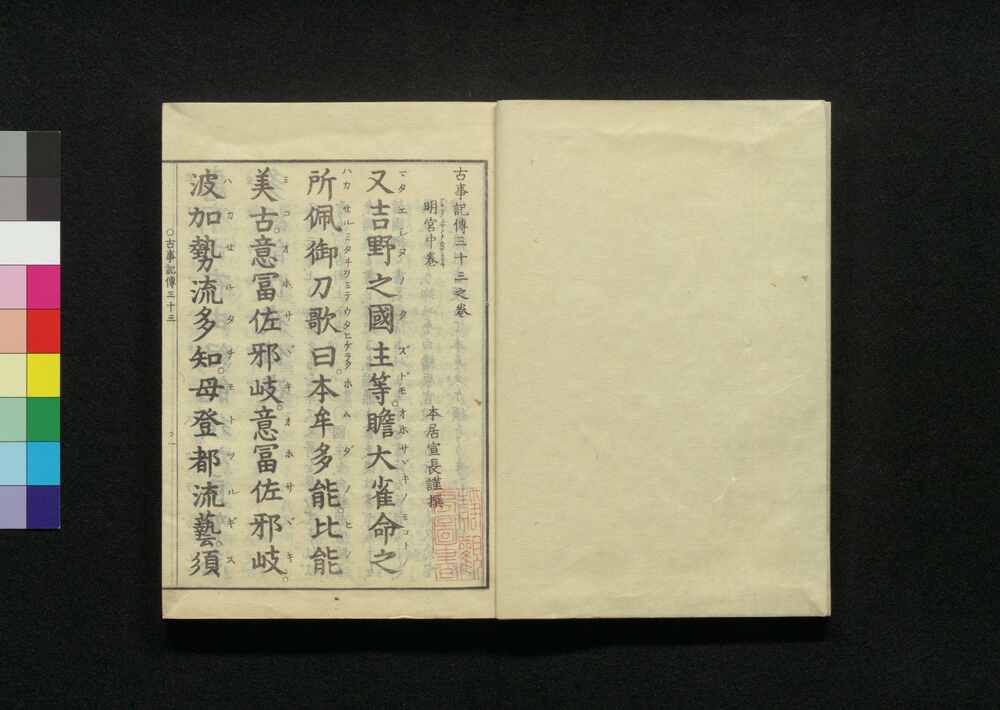 古事記傳三十三之卷
明宮中卷
本居宣長謹撰
又吉野之國主等。瞻大雀命之
所佩御刀歌曰。本牟多能。比能
美古。意富佐邪岐。意富佐邪岐。
波加勢流多知。母登都流藝。須
○古事記傳三十三